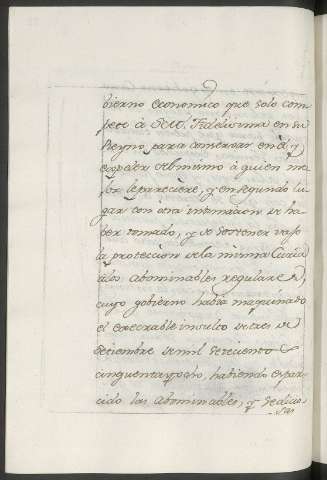 bierno economico que solo com
pete à S.M. Fidelisima en su
Reyno, para conservar en èl, y
expeler del mismo à quien me
jor le pareciere, y en segundo lu
gar con otra intimacion de ha
ver tomado, y de sostener vajo
la proteccion de la misma Curia
à los abominables regulares,
cuyo gobierno havia maquinado
el execrable insulto de tres de
Setiembre de mil setecientos
cinquenta y ocho, haviendo espar
cido las abominables, y sedicio
sas